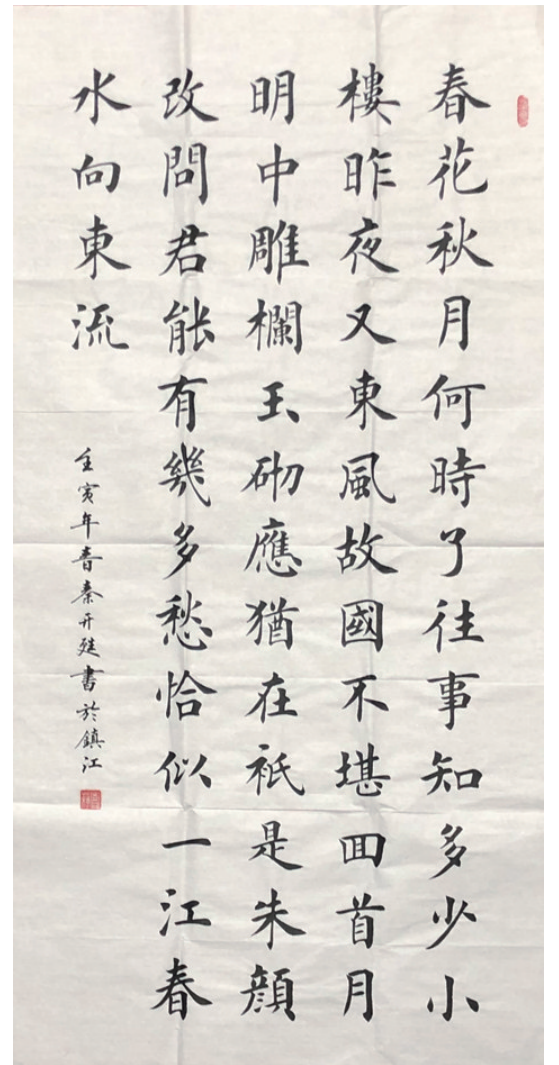 春花秋月何時了往事知多少小
樓昨夜又東風故國不堪回首月
明中雕欄玉砌應猶在祇是朱顏
改問君能有幾多愁恰似一江春
水向東流
壬寅年春秦开廷書於鎮江